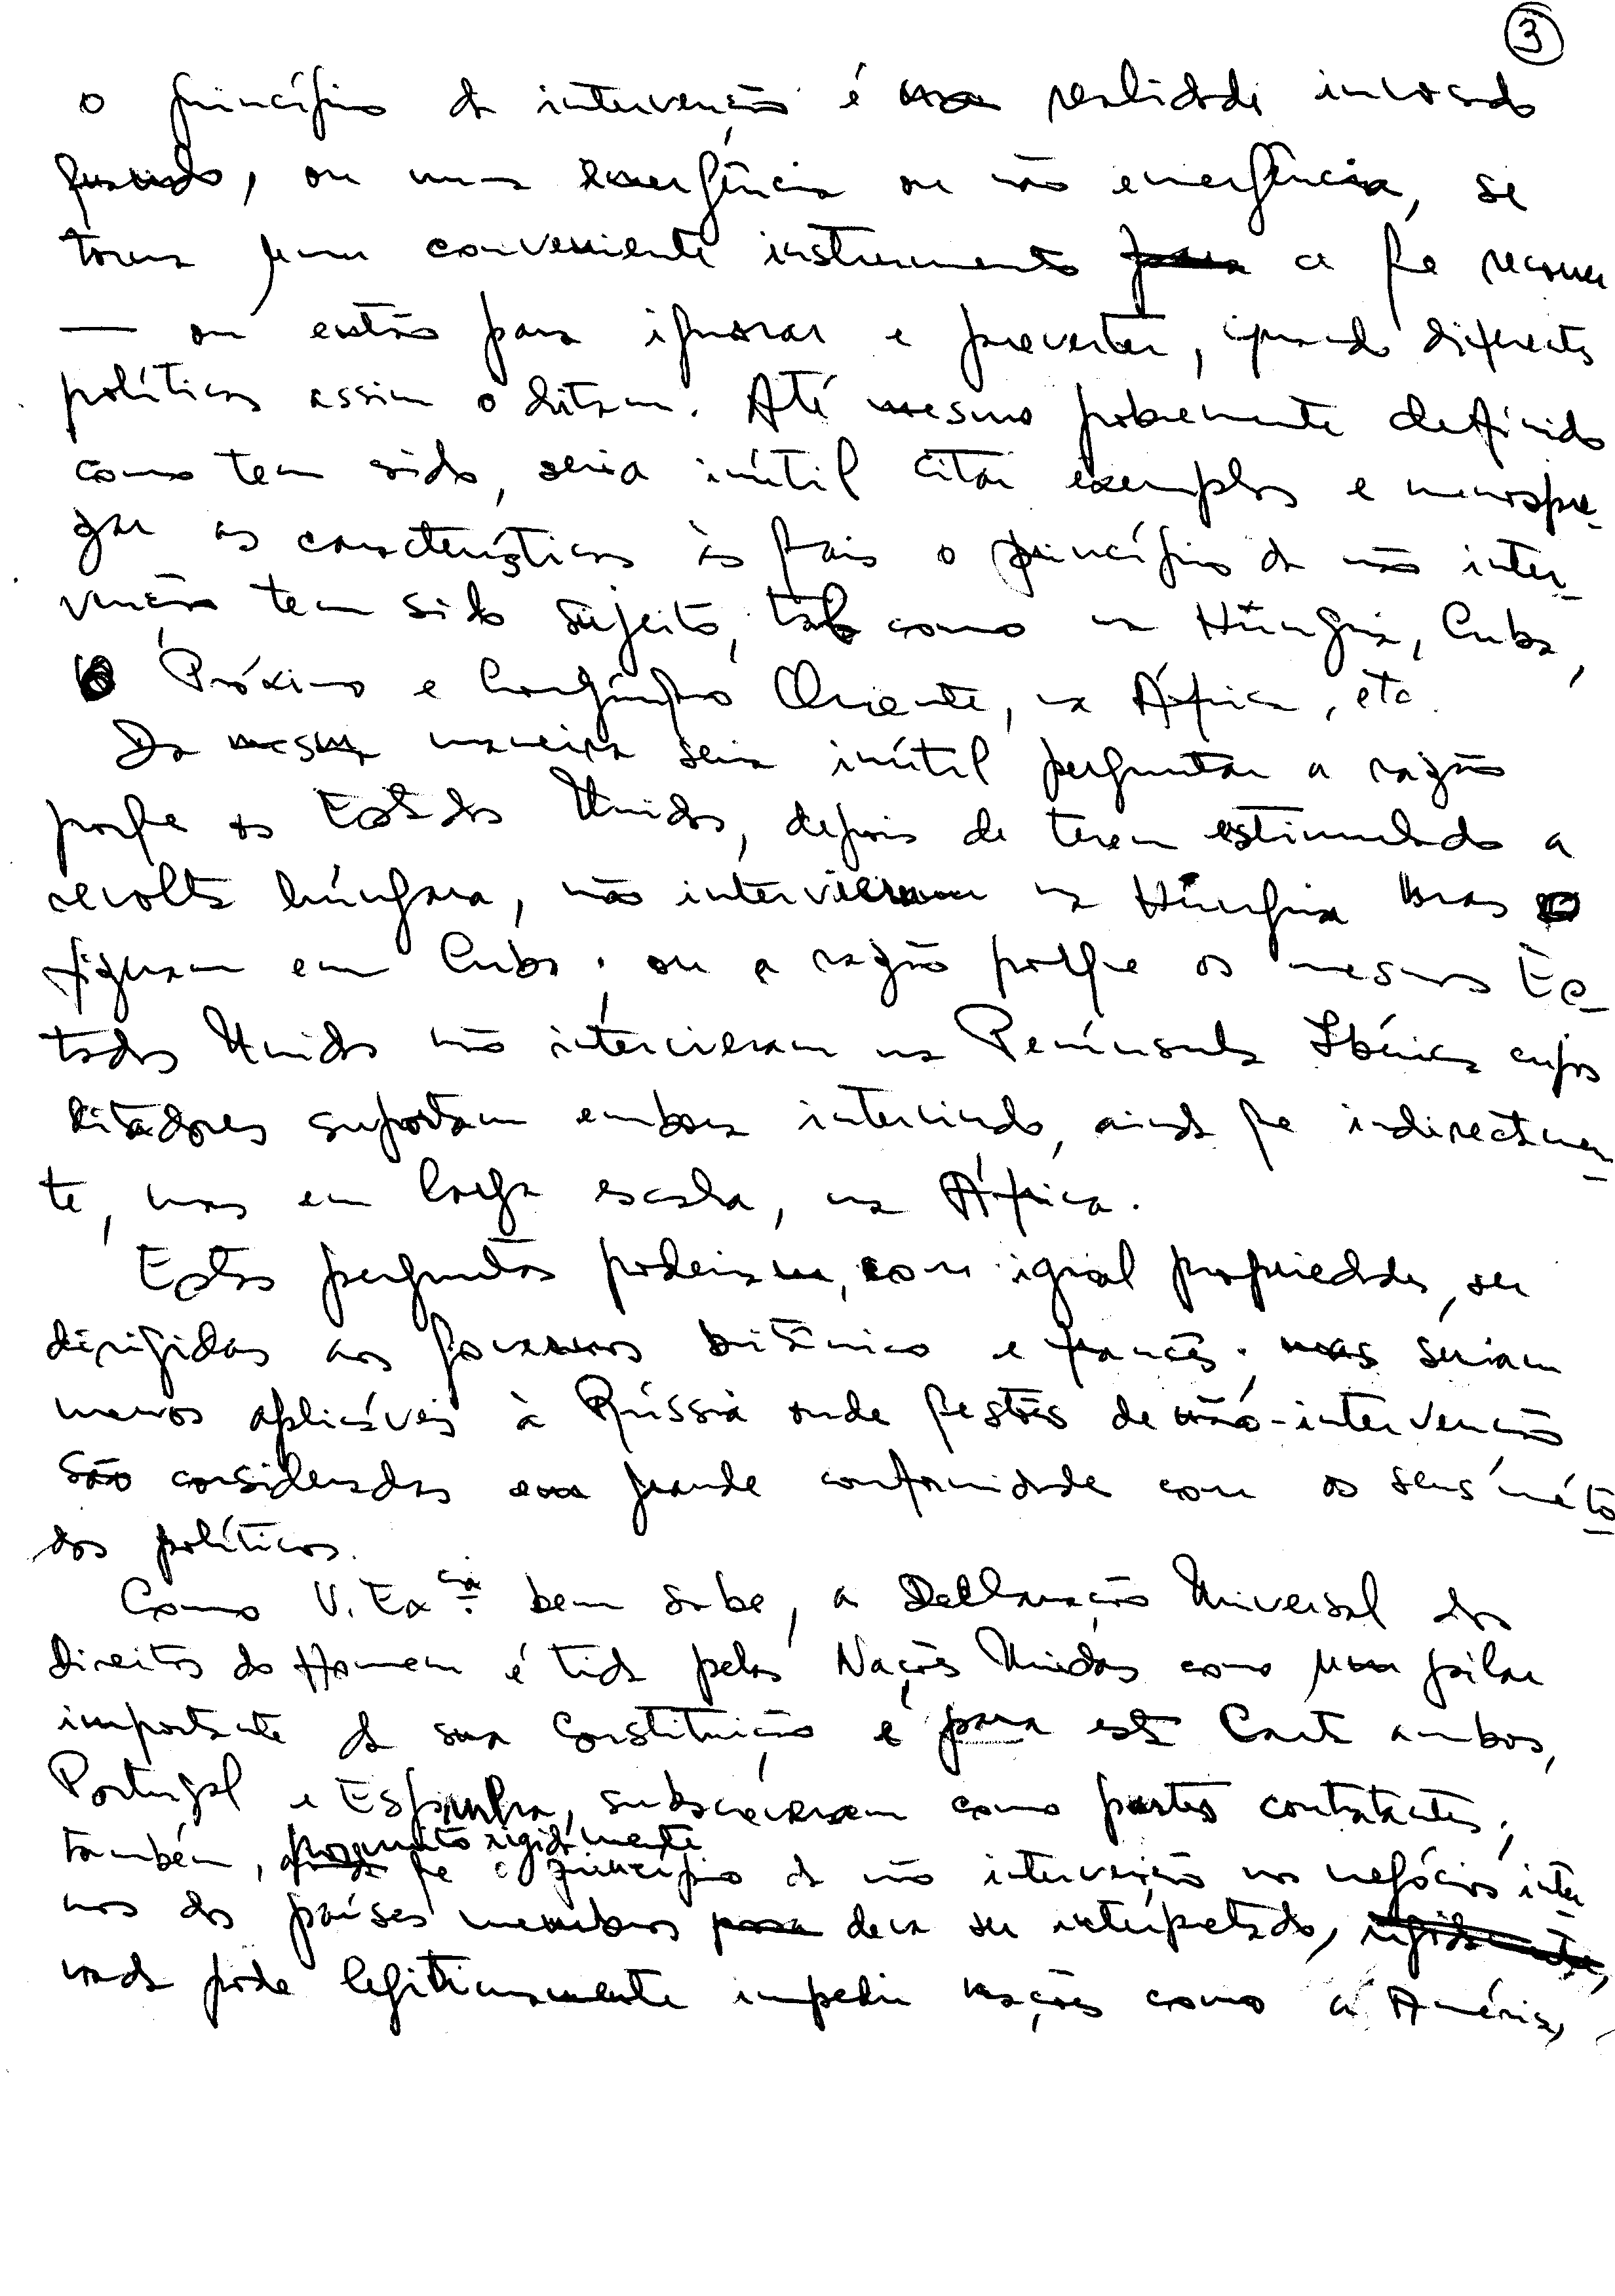 3
o princípio da intervenção é na realidade invocado
quando, ou numa emergência ou não emergência, se
torna um conveniente instrumento a que recorrer
— ou então para ignorar e preverter, quando diferentes
políticas assim o ditam. Até mesmo pobremente definido
como tem sido, seria inútil citar exemplos e menospre-
zar as características às quais o princípio da não inter-
venção tem sido sujeito, tal como na Húngria, Cuba,
Próximo e Longínquo Oriente, na África, etc.
Da mesma maneira seria inútil perguntar a razão
porque os Estados Unidos, depois de terem estimulado a
revolta húngara, não intervieram na Húngria mas
fizeram em Cuba; ou a razão porque os mesmos Es-
tados Unidos não intervieram na Península Ibérica cujos
ditadores suportam embora intervindo, ainda que indirectamen-
te, mas em larga escala, na África.
Estas perguntas poderiam, com igual propriedade, ser
dirigidas aos governos britânico e francês; mas seriam
menos aplicáveis à Rússia onde gestões de não-intervenção
são consideradas em grande conformidade com os seus méto-
dos políticos.
Como V. Exª cia bem sabe, a Declaração Universal dos
Direitos do Homem é tida pelas Nações Unidas como um pilar
importante da sua Constituição e para esta Carta ambos,
Portugal e Espanha, subscreveram como partes contratantes;
também, por muito rigidamente que o princípio da não intervenção nos negócios inter-
nos dos países membros deva ser interpretado,
nada pode legitimamente impedir nações como a América,